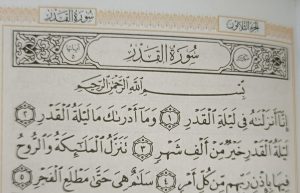 سُورَةُ القَدْرِ الجُزْءُ الثَّلَاثُونَ
سُورَةُ القَدْرِ
بِسْمِ اللَّهِ الرَّحْمَٰنِ الرَّحِيمِ
إِنَّا أَنزَلْنَٰهُ فِي لَيْلَةِ الْقَدْرِ ١ وَمَا أَدْرَىٰكَ مَا لَيْلَةُ الْقَدْرِ ٢
لَيْلَةُ الْقَدْرِ خَيْرٌ مِّنْ أَلْفِ شَهْرٍ ٣ تَنَزَّلُ الْمَلَٰٓئِكَةُ وَالرُّوحُ
فِيهَا بِإِذْنِ رَبِّهِم مِّن كُلِّ أَمْرٍ ٤ سَلَٰمٌ هِيَ حَتَّىٰ مَطْلَعِ الْفَجْرِ ٥